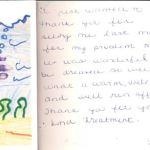 I just wanted to
thank you for
seeing me last min
for my problem to
It was wonderful to
be treated so well
what a warm, welc
and well run off
Thank you for you
kind treatment.